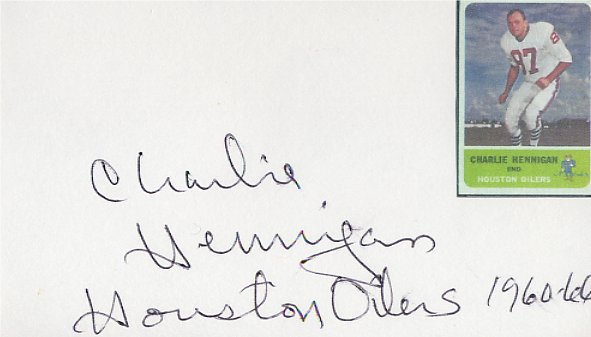 87
CHARLIE HENNIGAN
END
HOUSTON OILERS
Charlie
Hennigan
Houston Oilers 1960-66